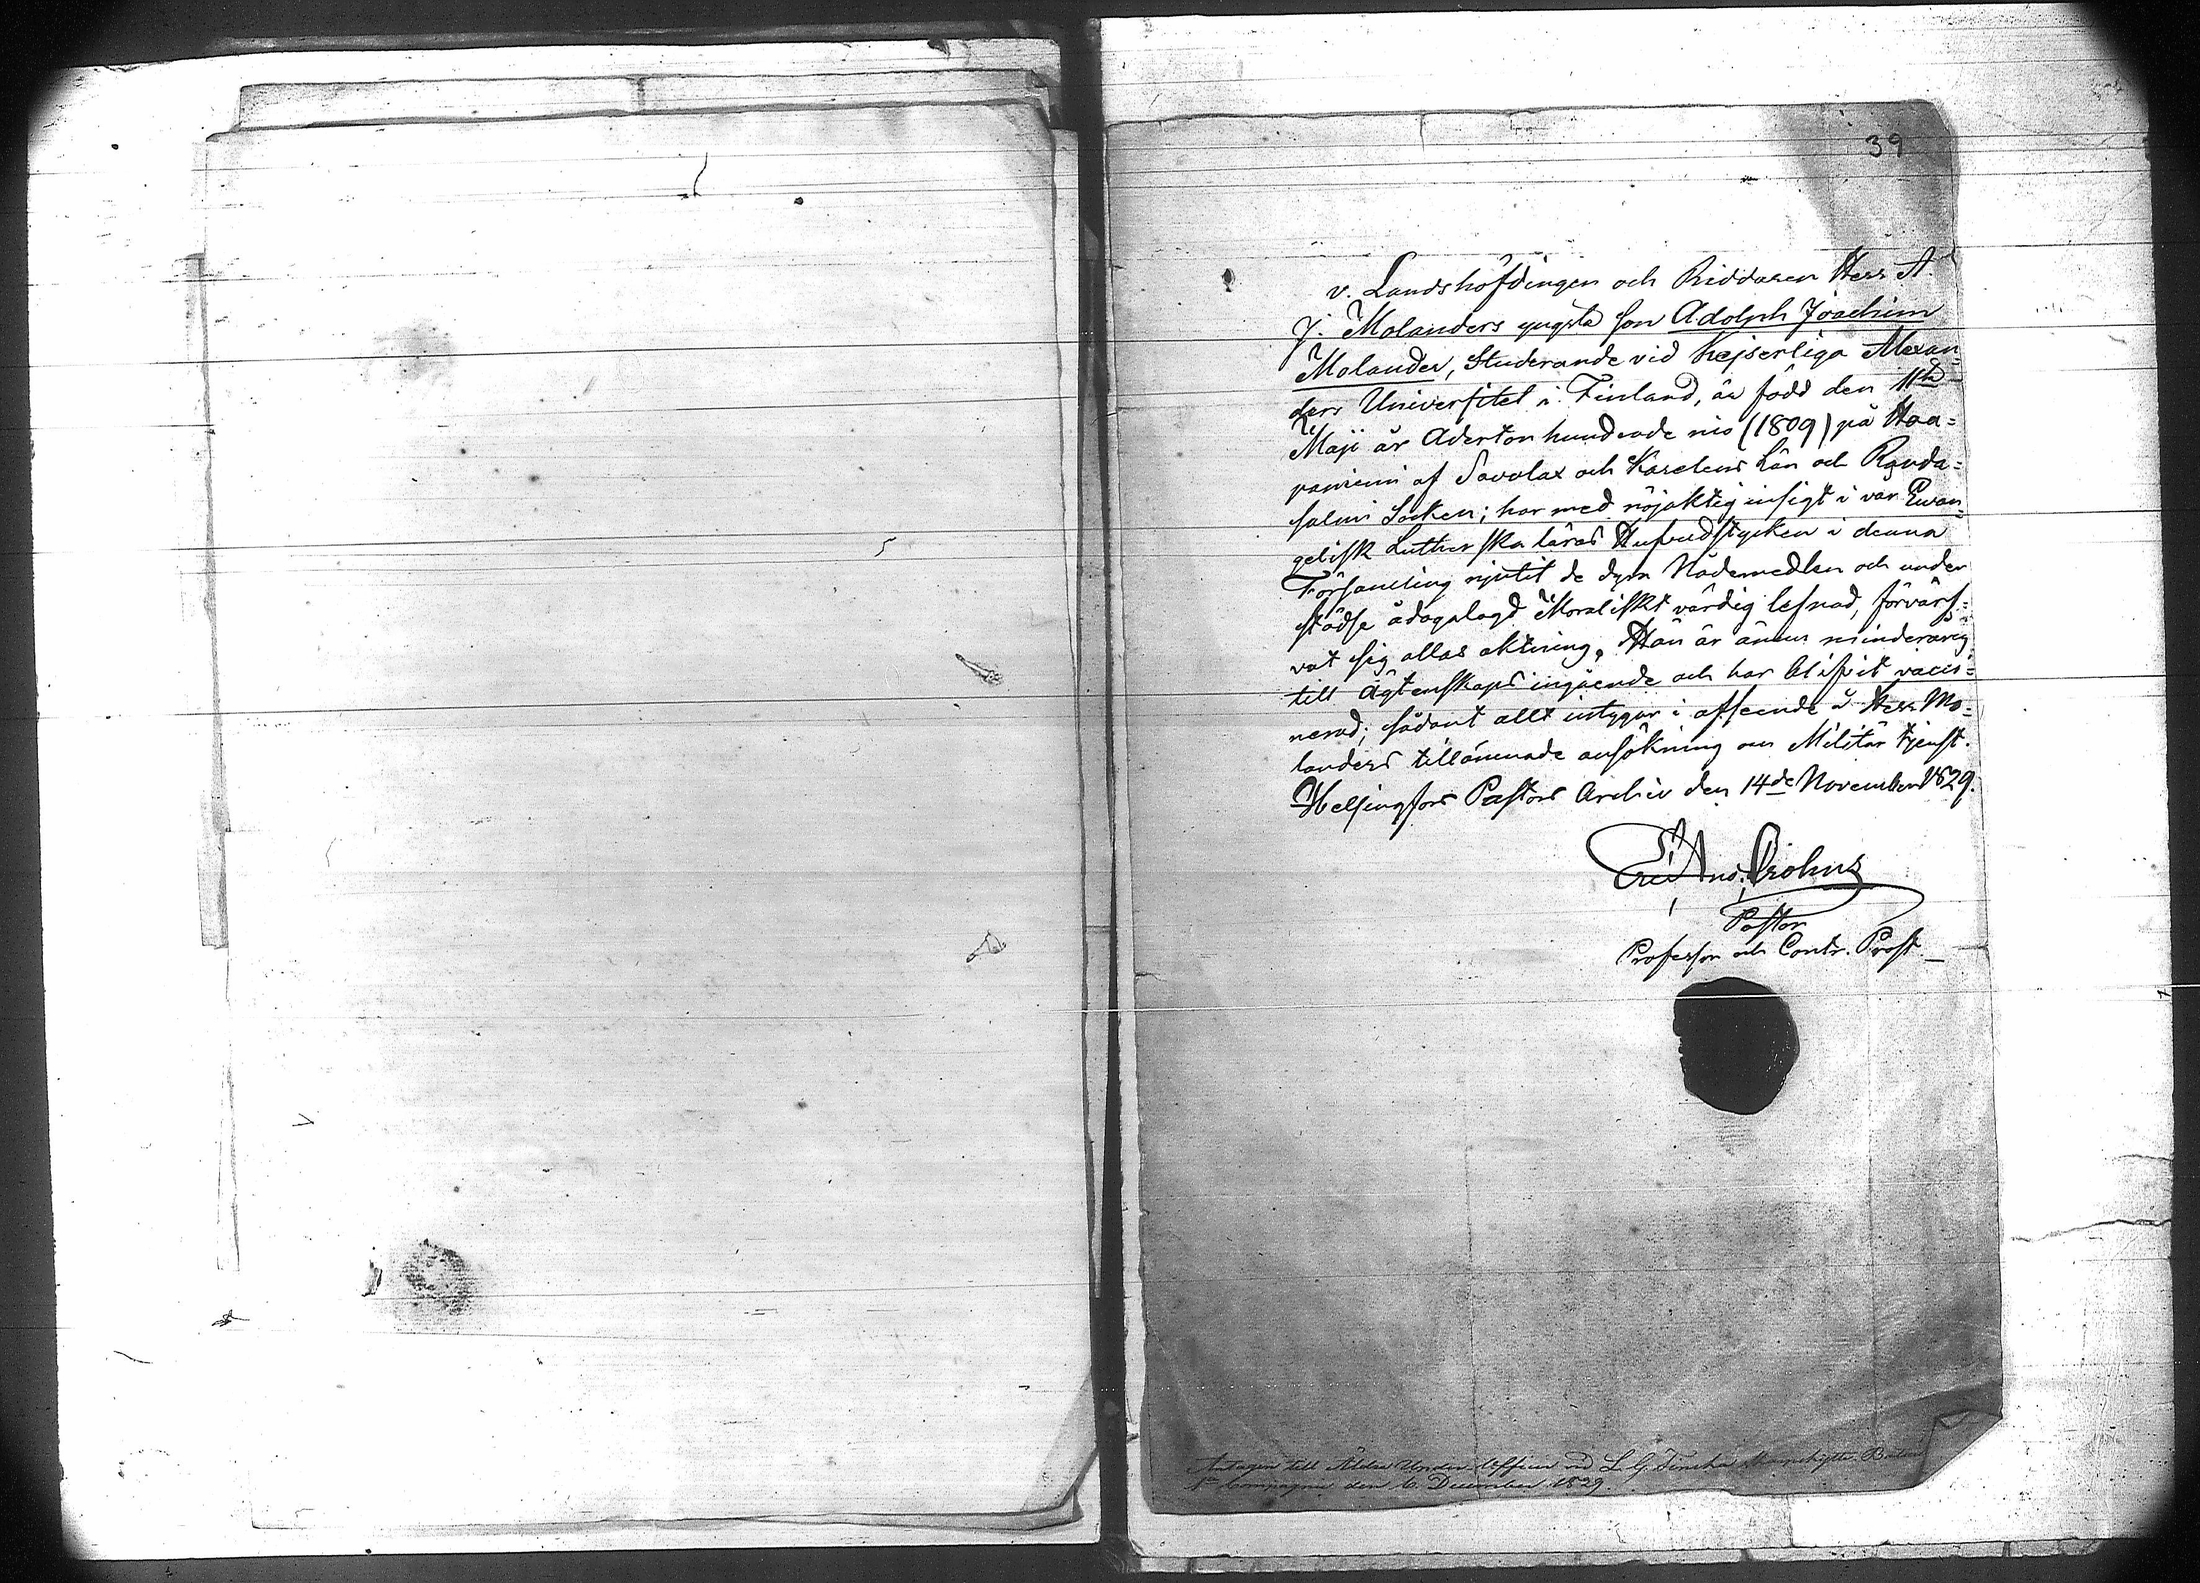 39
v. Landshöfdingen och Riddaren Herr A.
J. Molanders yngsta son Adolph Joachim
Molander, Studerande vid Kejserliga Alexan-
ders Universitet i Finland, är född den 11te
Maji år Adertonhundrade nio (1809) på Haa=
paniemi af Savolax och Karelens Län och Randa=
salmi Socken; har med nöjaktig insigt i vår Evan=
gelisk Lutherska läras Hufvudstycken i denna
Församling njutit de dyra Nådemedlen och under
städse ådagalagd Moraliskt värdig lefnad, förvärf=
vat sig allas aktning. Han är ännu minderårig
till Ägtenskaps ingående och har blifvit vacci=
nerad; sådant allt intygar i afseende å Herr Mo=
landers tillämnade ansökning om Militär tjenst.
Helsingfors Pastors Archiv den 14de November 1829.
Crohns
Pastor
Professor och Contr. Prost.
Antagen till Äldre Under Officer vid L. G. Finska Skarpskytte Bataljon
1ta Compagnie den 6. December 1829.